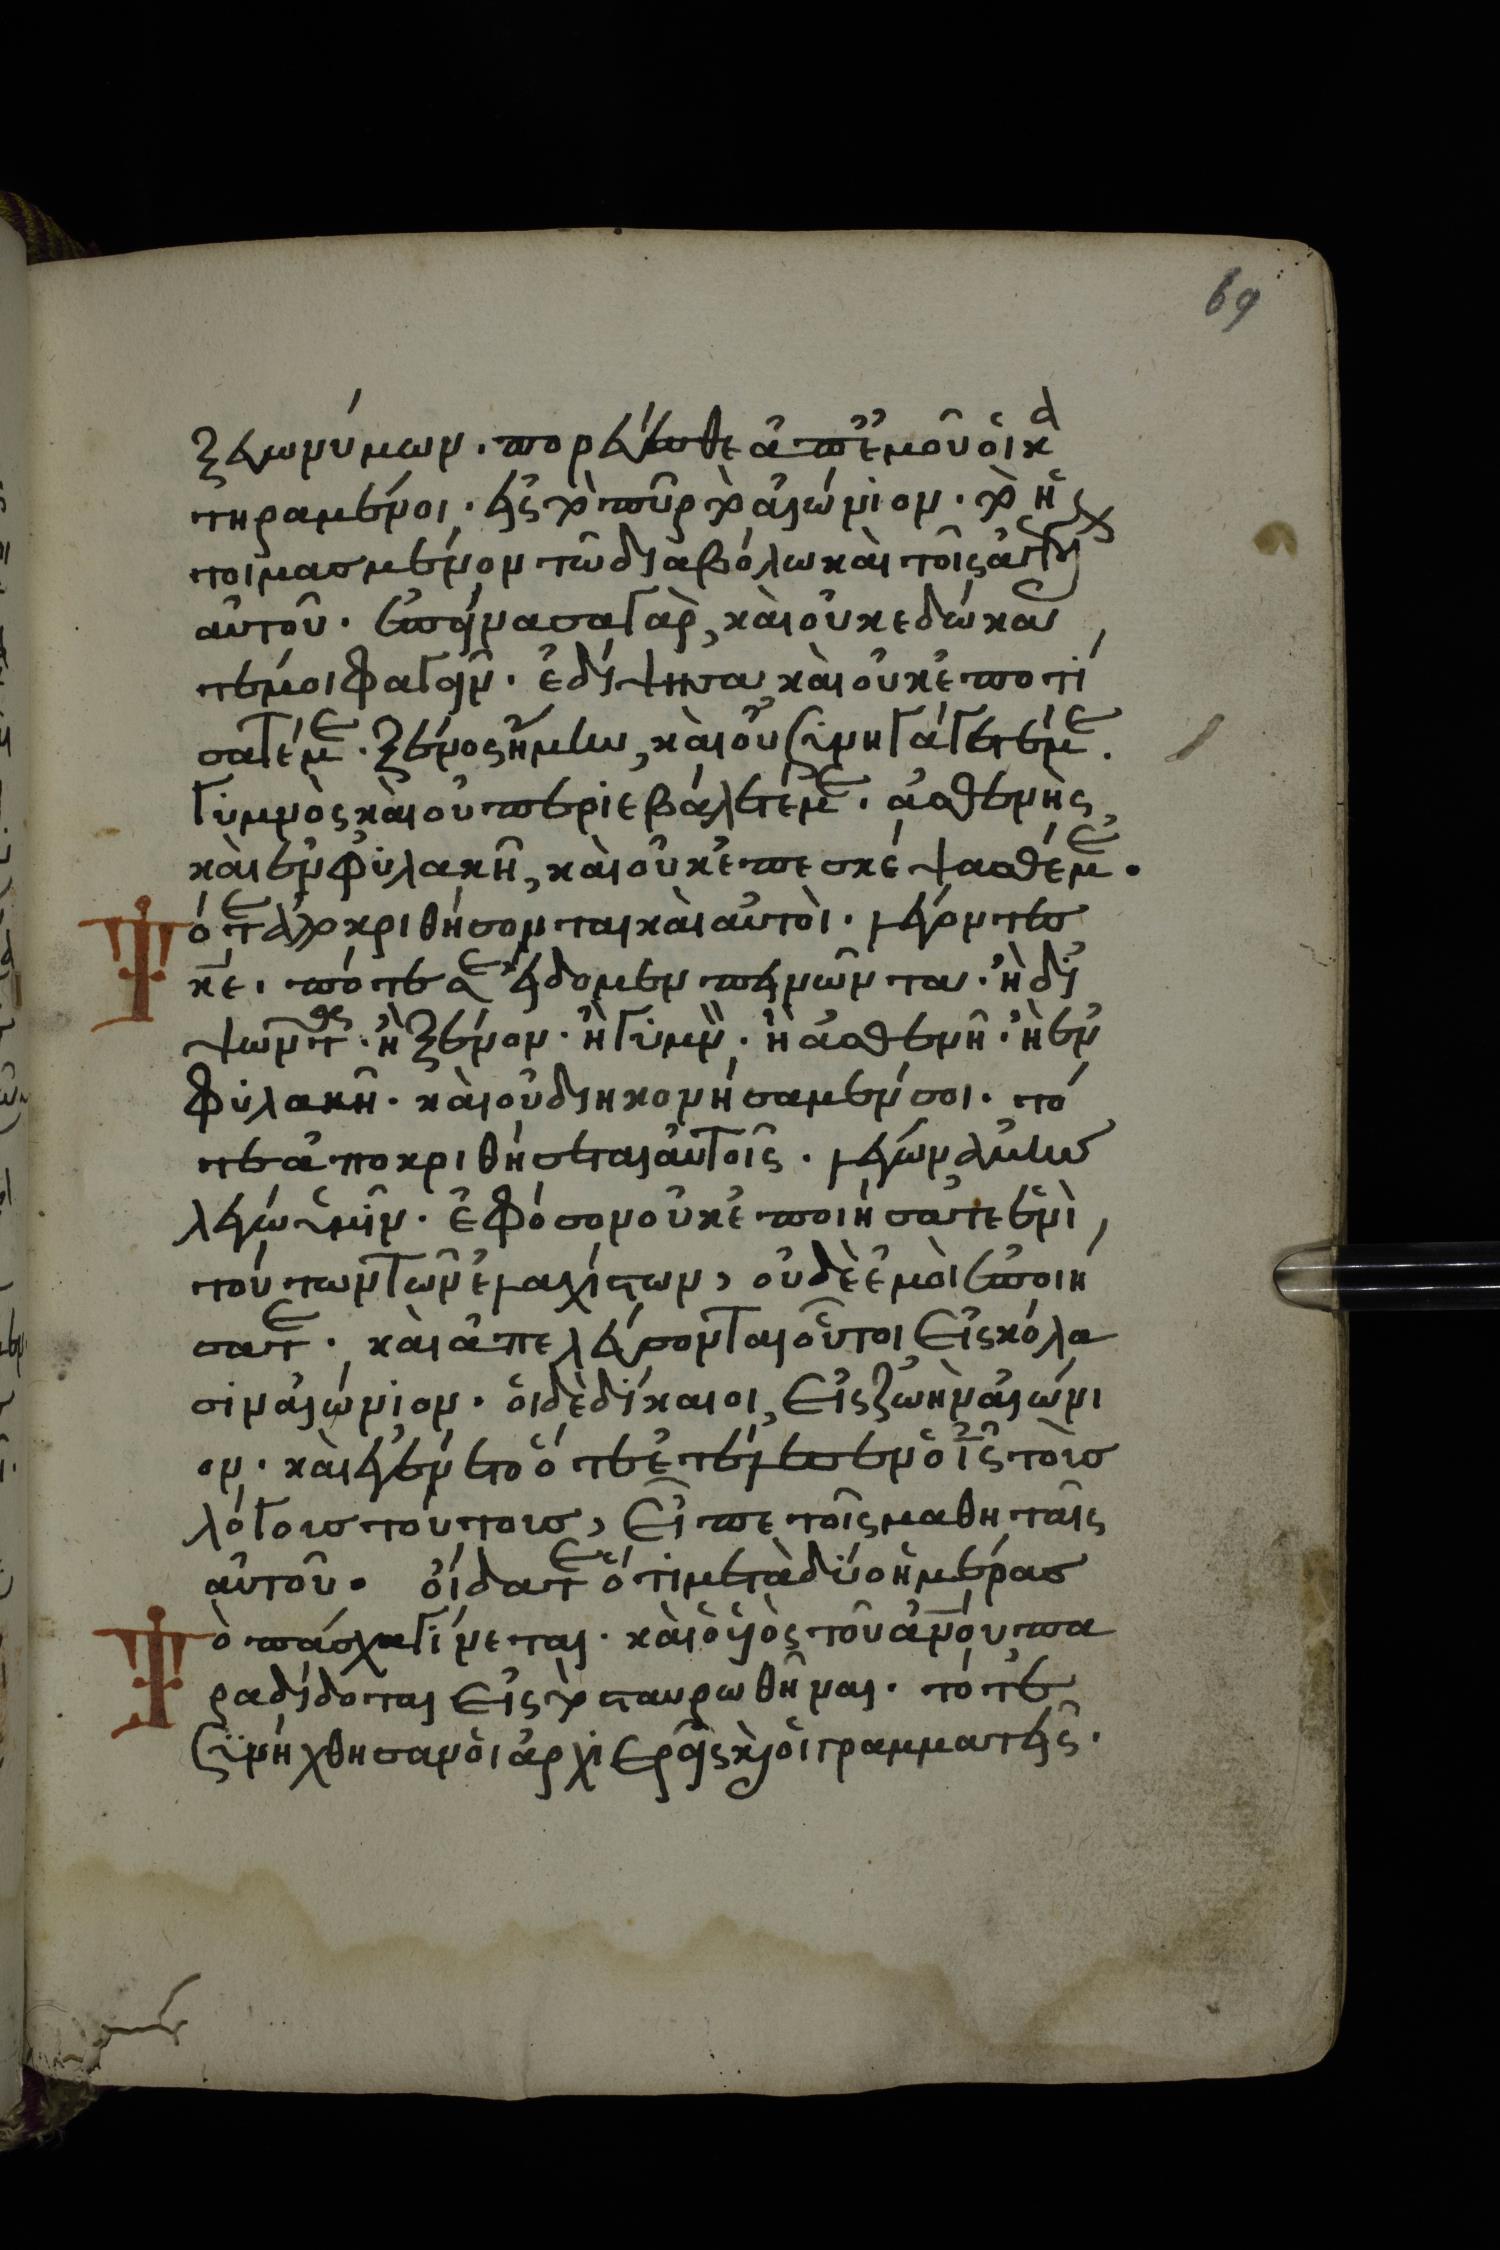 69
ξευωνύμων· πορεύεσθε ἀπ' ἐμοῦ οἱ κα
τηραμένοι· εἰς τὸ πῦρ τὸ αἰώνιον· τὸ ἡ
τοιμασμένον τῶ διαβόλω καὶ τοῖς ἀγγέλοις
αὐτοῦ· ἐπείνασα γὰρ, καὶ οὐκ εδώκα
τέ μοι φαγεῖν· ἐδίψησα, καὶ οὐκ ἐποτί
σατέ με· ξένος ἤμην, καὶ οὐ συνηγάγετέ με·
γυμνὸς καὶ οὐ περιεβάλετέ με· ἀσθενὴς
καὶ ἐν φυλακῆ, καὶ οὐκ ἐπεσκέψασθέ με·
Τότε ἀποκριθήσονται καὶ αὐτοὶ· λέγοντες
κε· πότε σε εἴδομεν πεινῶντα· ἢ δι
ψῶντα· ἢ ξένον· ἢ γυμνὸν· ἢ ἀσθενῆ· ἢ ἐν
φυλακῆ· καὶ οὐ διηκονήσαμέν σοι· τό
τε ἀποκριθήσεται αὐτοῖς· λέγων ἀμὴν
λέγω ὑμῖν· ἐφόσον οὐκ ἐποιήσατε ἑνὶ
τούτων τῶν ἐλαχίστων, οὐδὲ ἐμοὶ ἐποιή
σατε· καὶ ἀπελεύσονται οὗτοι εἰς κόλα
σιν αἰώνιον· οἱ δὲ δίκαιοι, εἰς ζωὴν αἰώνι
ον· καὶ ἐγένετο ὅτε ἐτέλεσεν ὁ ις τοὺς
λόγους τούτους, εἶπε τοῖς μαθηταῖς
αὐτοῦ· οἴδατε ὅτι μετὰ δύο ἡμέρας
Τὸ πάσχα γίνεται· καὶ ὁ υἱὸς τοῦ ανου πα
ραδίδοται εἰς τὸ σταυρωθῆναι· τότε
συνήχθησαν οἱ ἀρχιερεῖς καὶ οἱ γραμματεῖς·